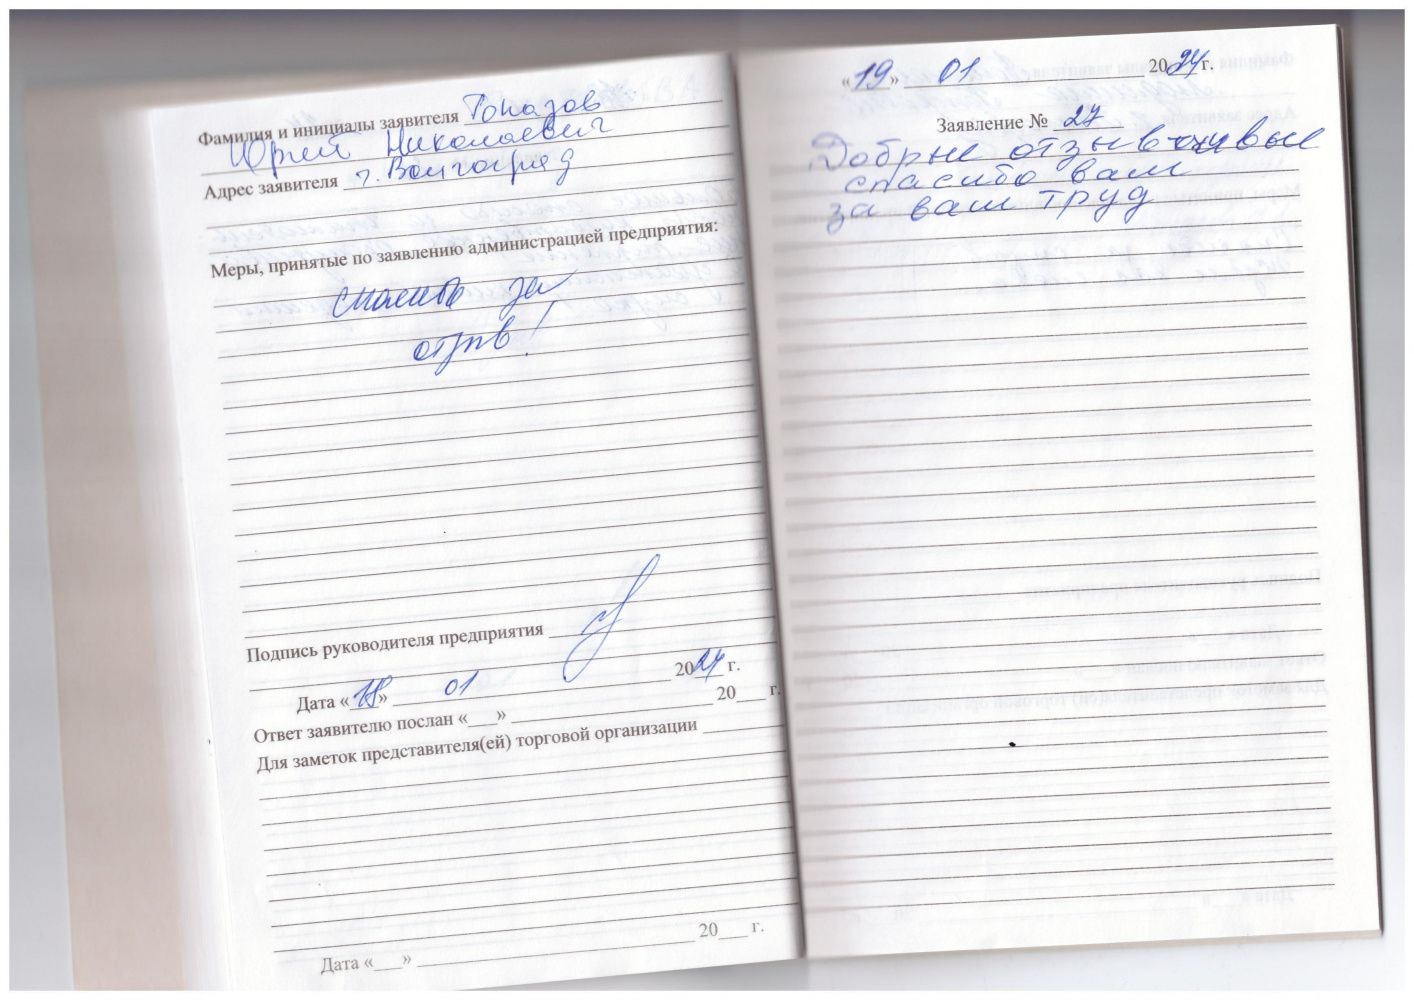 Фамилия и инициалы заявителя Топазов
Юрий Николаевич
Адрес заявителя г. Волгоград
Меры, принятые по заявлению администрацией предприятия:
спасибо за
отзыв!
Подпись руководителя предприятия
20 24 г.
Дата «18» 01
Ответ заявителю послан «___» 20___ г.
Для заметок представителя(ей) торговой организации
Дата «___» 20___ г.
«19» 01 20 24 г.
Заявление № 27
Добрые отзывчивые
спасибо вам
за ваш труд